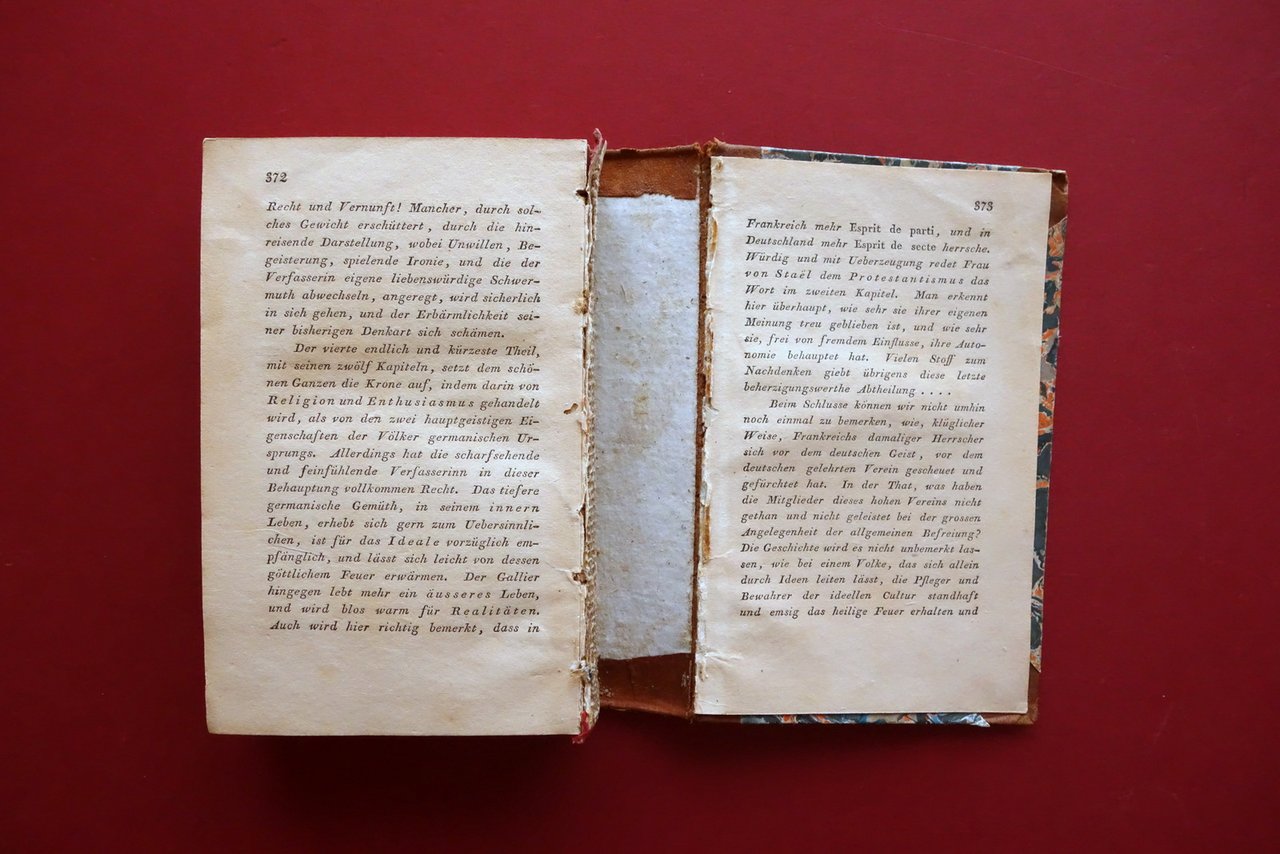 372
Recht und Vernunft! Mancher, durch sol-
ches Gewicht erschüttert, durch die hin-
reisende Darstellung, wobei Unwillen, Be-
geisterung, spielende Ironie, und die der
Verfasserin eigene liebenswürdige Schwer-
muth abwechseln, angeregt, wird sicherlich
in sich gehen, und der Erbärmlichkeit sei-
ner bisherigen Denkart sich schämen.
Der vierte endlich und kürzeste Theil,
mit seinen zwölf Kapiteln, setzt dem schö-
nen Ganzen die Krone auf, indem darin von
Religion und Enthusiasmus gehandelt
wird, als von den zwei hauptgeistigen Ei-
genschaften der Völker germanischen Ur-
sprungs. Allerdings hat die scharfsehende
und feinfühlende Verfasserinn in dieser
Behauptung vollkommen Recht. Das tiefere
germanische Gemüth, in seinem innern
Leben, erhebt sich gern zum Uebersinnli-
chen, ist für das Ideale vorzüglich em-
pfänglich, und lässt sich leicht von dessen
göttlichem Feuer erwärmen. Der Gallier
hingegen lebt mehr ein äusseres Leben,
und wird blos warm für Realitäten.
Auch wird hier richtig bemerkt, dass in
373
Frankreich mehr Esprit de parti, und in
Deutschland mehr Esprit de secte herrsche.
Würdig und mit Ueberzeugung redet Frau
von Staël dem Protestantismus das
Wort im zweiten Kapitel. Man erkennt
hier überhaupt, wie sehr sie ihrer eigenen
Meinung treu geblieben ist, und wie sehr
sie, frei von fremdem Einflusse, ihre Auto-
nomie behauptet hat. Vielen Stoff zum
Nachdenken giebt übrigens diese letzte
beherzigungswerthe Abtheilung ....
Beim Schlusse können wir nicht umhin
noch einmal zu bemerken, wie, klüglicher
Weise, Frankreichs damaliger Herrscher
sich vor dem deutschen Geist, vor dem
deutschen gelehrten Verein gescheuet und
gefürchtet hat. In der That, was haben
die Mitglieder dieses hohen Vereins nicht
gethan und nicht geleistet bei der grossen
Angelegenheit der allgemeinen Befreiung?
Die Geschichte wird es nicht unbemerkt las-
sen, wie bei einem Volke, das sich allein
durch Ideen leiten lässt, die Pfleger und
Bewahrer der ideellen Cultur standhaft
und emsig das heilige Feuer erhalten und